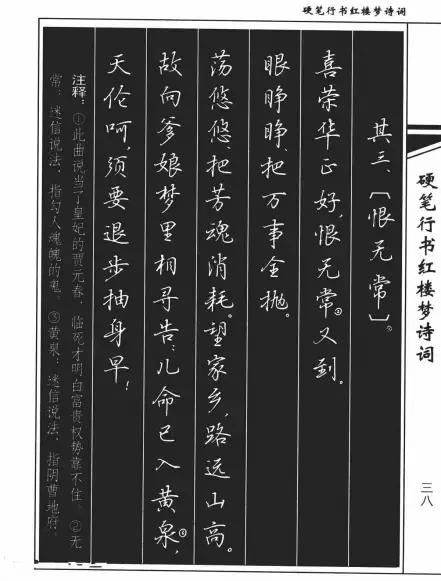 硬笔行书红楼梦诗词
其三、〔恨无常〕①
喜荣华正好,恨无常②又到。
眼睁睁,把万事全抛。
荡悠悠,把芳魂消耗。望家乡,路远山高。
故向爹娘梦里相寻告:儿命已入黄泉③,
天伦呵,须要退步抽身早!
注释:①此曲说当了皇妃的贾元春,临死才明白富贵权势靠不住。②无
常:迷信说法,指勾人魂魄的鬼。③黄泉:迷信说法,指阴曹地府。
硬笔行书红楼梦诗词
三八